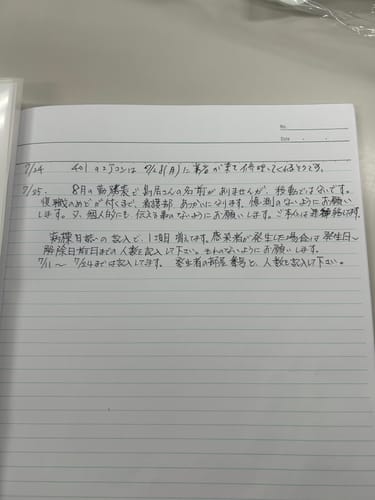 No.
Date
7/24 401のエアコンは 7/28(月)に業者が来て修理してくれるそうです。
7/25. 8月の勤務表で島居さんの名前がありませんが、移動ではないです。
復職のめどが付くまで、看護部 あつかいになります。憶測のないようにお願い
します。又、個人的にも伝える事のないようにお願いします。ご本人は
病棟日誌の記入で、1項目 増してます。感染者が発生した場合は発生日〜
解除日前日までの人数を記入して下さい。もれのないようにお願いします。
7/11〜 7/24までは記入してます。 発生者の部屋番号と、人数を記入して下さい。